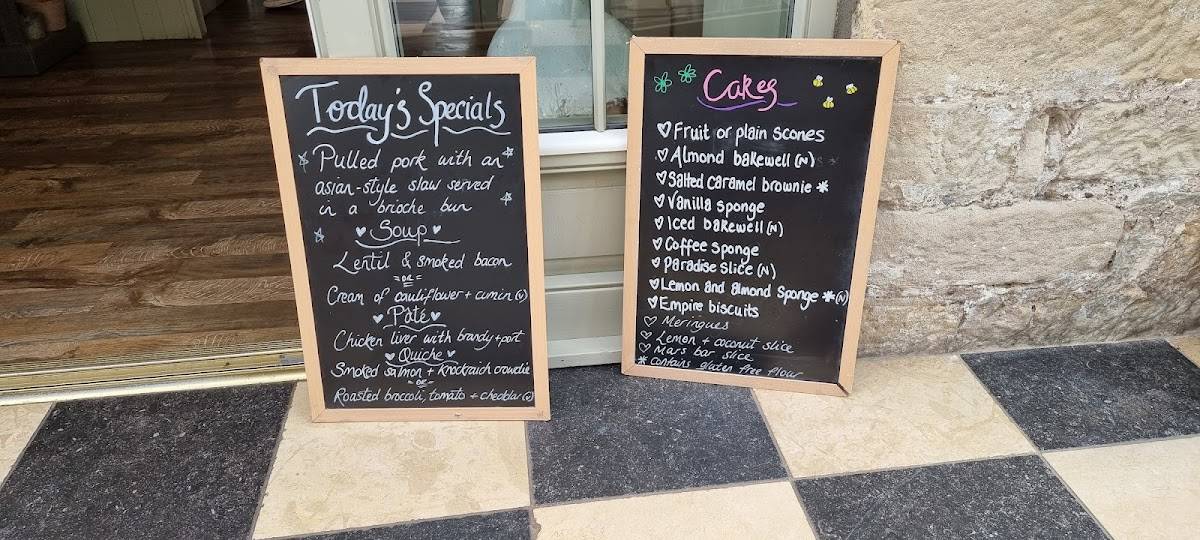 Today's Specials
Pulled pork with an
asian-style slaw served
in a brioche bun
Soup
Lentil & smoked bacon
OR
Cream of cauliflower + cumin (v)
Pâté
Chicken liver with brandy + port
Quiche
Smoked salmon + Knockraich crowdie
OR
Roasted broccoli, tomato + cheddar (v)
Cakes
Fruit or plain scones
Almond bakewell (N)
Salted caramel brownie *
Vanilla sponge
Iced bakewell (N)
Coffee sponge
Paradise slice (N)
Lemon and almond sponge * (N)
Empire biscuits
Meringues
Lemon + coconut slice
Mars bar slice
* contains gluten free flour